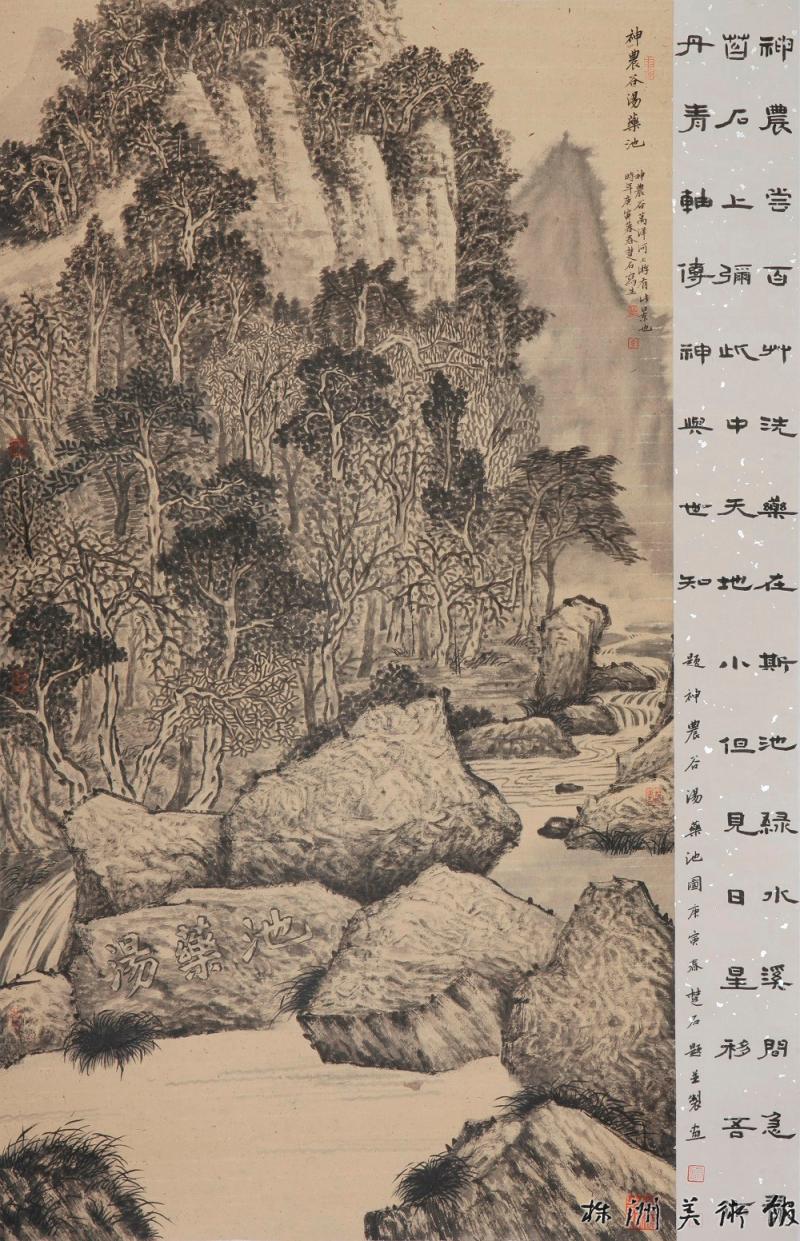 神農嘗百艸洗藥在斯池綠水溪間急
苔石上彌此中天地小但見日星移吾
丹青軸傳神與世知
題神農谷湯藥池圖庚寅春楚石題並製畫
神農谷湯藥池
神農谷萬洋河上游有此景也
時年庚寅暮春楚石寫生
湯藥池
株洲美術報